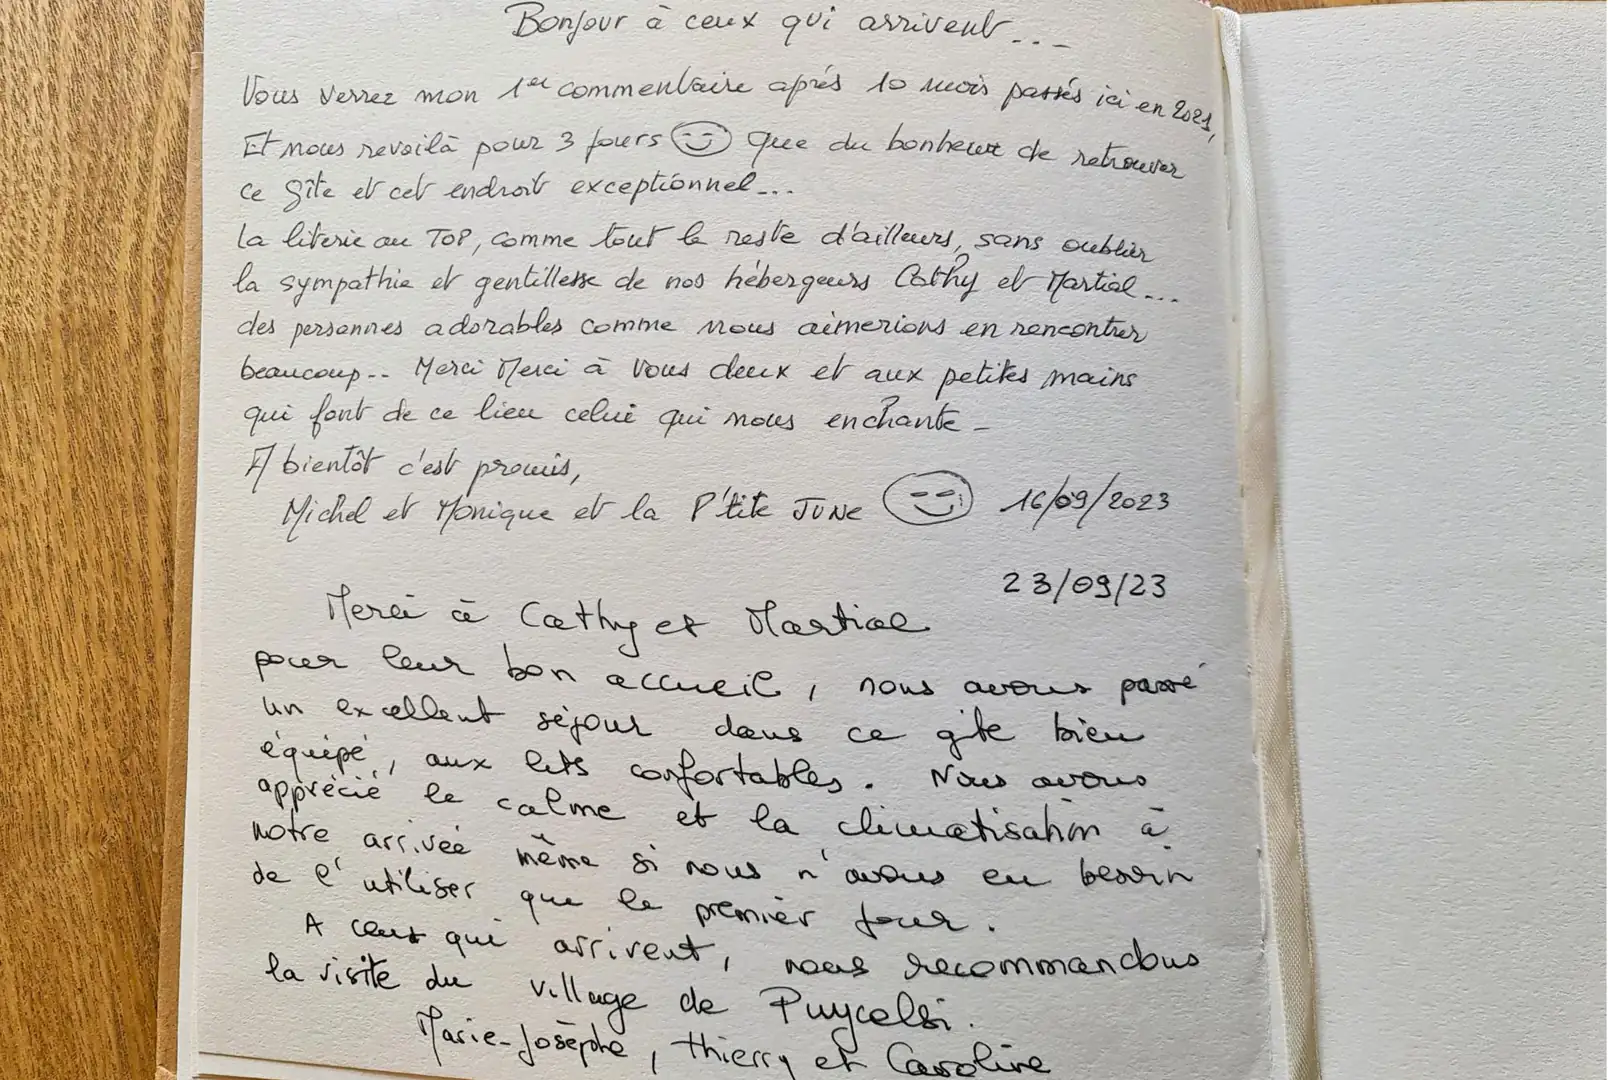 Bonjour à ceux qui arrivent...
Vous verrez mon 1er commentaire après 10 mois passés ici en 2021,
Et nous revoilà pour 3 jours que du bonheur de retrouver
ce gîte et cet endroit exceptionnel...
La literie au TOP, comme tout le reste d'ailleurs, sans oublier
la sympathie et gentillesse de nos hébergeurs Cathy et Martial...
des personnes adorables comme nous aimerions en rencontrer
beaucoup.. Merci Merci à vous deux et aux petites mains
qui font de ce lieu celui qui nous enchante -
A bientôt c'est promis,
Michel et Monique et la P'tite JUNE 16/09/2023
23/09/23
Merci à Cathy et Martial
pour leur bon accueil, nous avons passé
un excellent séjour dans ce gîte bien
équipé, aux lits confortables. Nous avons
apprécié le calme et la climatisation à
notre arrivée même si nous n'avons eu besoin
de l'utiliser que le premier jour.
A ceux qui arrivent, nous recommandons
la visite du village de Puycelsi.
Marie-Josèphe, Thierry et Caroline